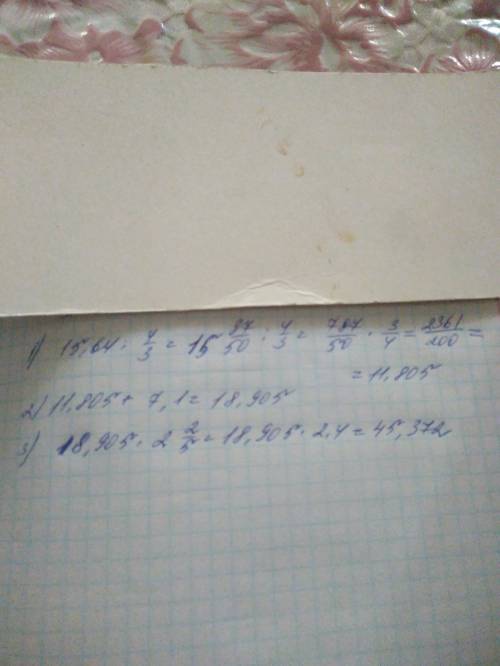 1) 15,64 : 4/3 = 15 87/50 : 4/3 = 787/50 · 3/4 = 2361/200 =
= 11,805
2) 11,805 + 7,1 = 18,905
3) 18,905 · 2 2/5 = 18,905 · 2,4 = 45,372